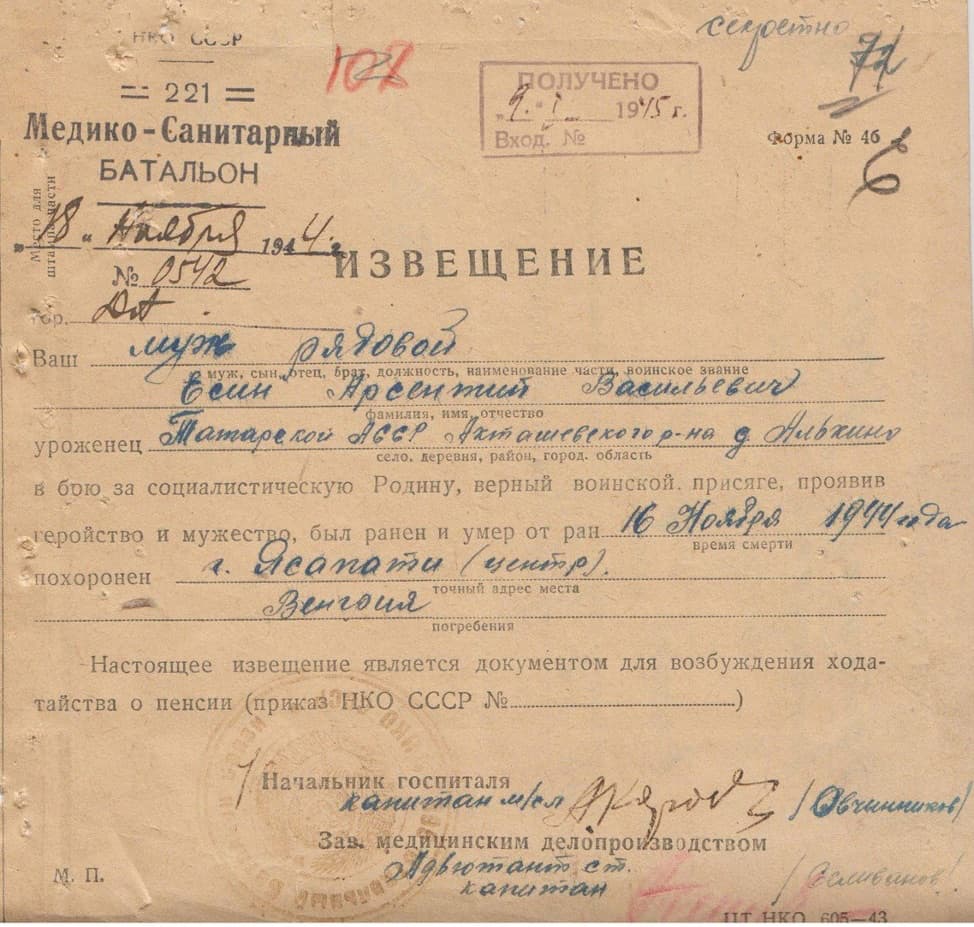 секретно
НКО СССР
102
72
221
ПОЛУЧЕНО
„9“ I 1945 г.
Вход. №
Медико-Санитарный
БАТАЛЬОН
Форма № 46
6
Место для
штампа части
„18“ Ноября 1944 г.
№ 0542
ИЗВЕЩЕНИЕ
гор.
Ваш муж рядовой
муж, сын, отец, брат, должность, наименование части, воинское звание
Есин Арсентий Васильевич
фамилия, имя, отчество
уроженец Татарской АССР Акташевского р-на д. Альхино
село, деревня, район, город, область
в бою за социалистическую Родину, верный воинской присяге, проявив
геройство и мужество, был ранен и умер от ран 16 Ноября 1944 года
время смерти
похоронен г. Ясапати (центр).
точный адрес места
Венгрия
погребения
Настоящее извещение является документом для возбуждения хода-
тайства о пенсии (приказ НКО СССР №)
Начальник госпиталя
капитан м/сл /Овчинников/
Зав. медицинским делопроизводством
Адъютант ст.
капитан /Селиванов/
М. П.
ЦТ НКО 605—43